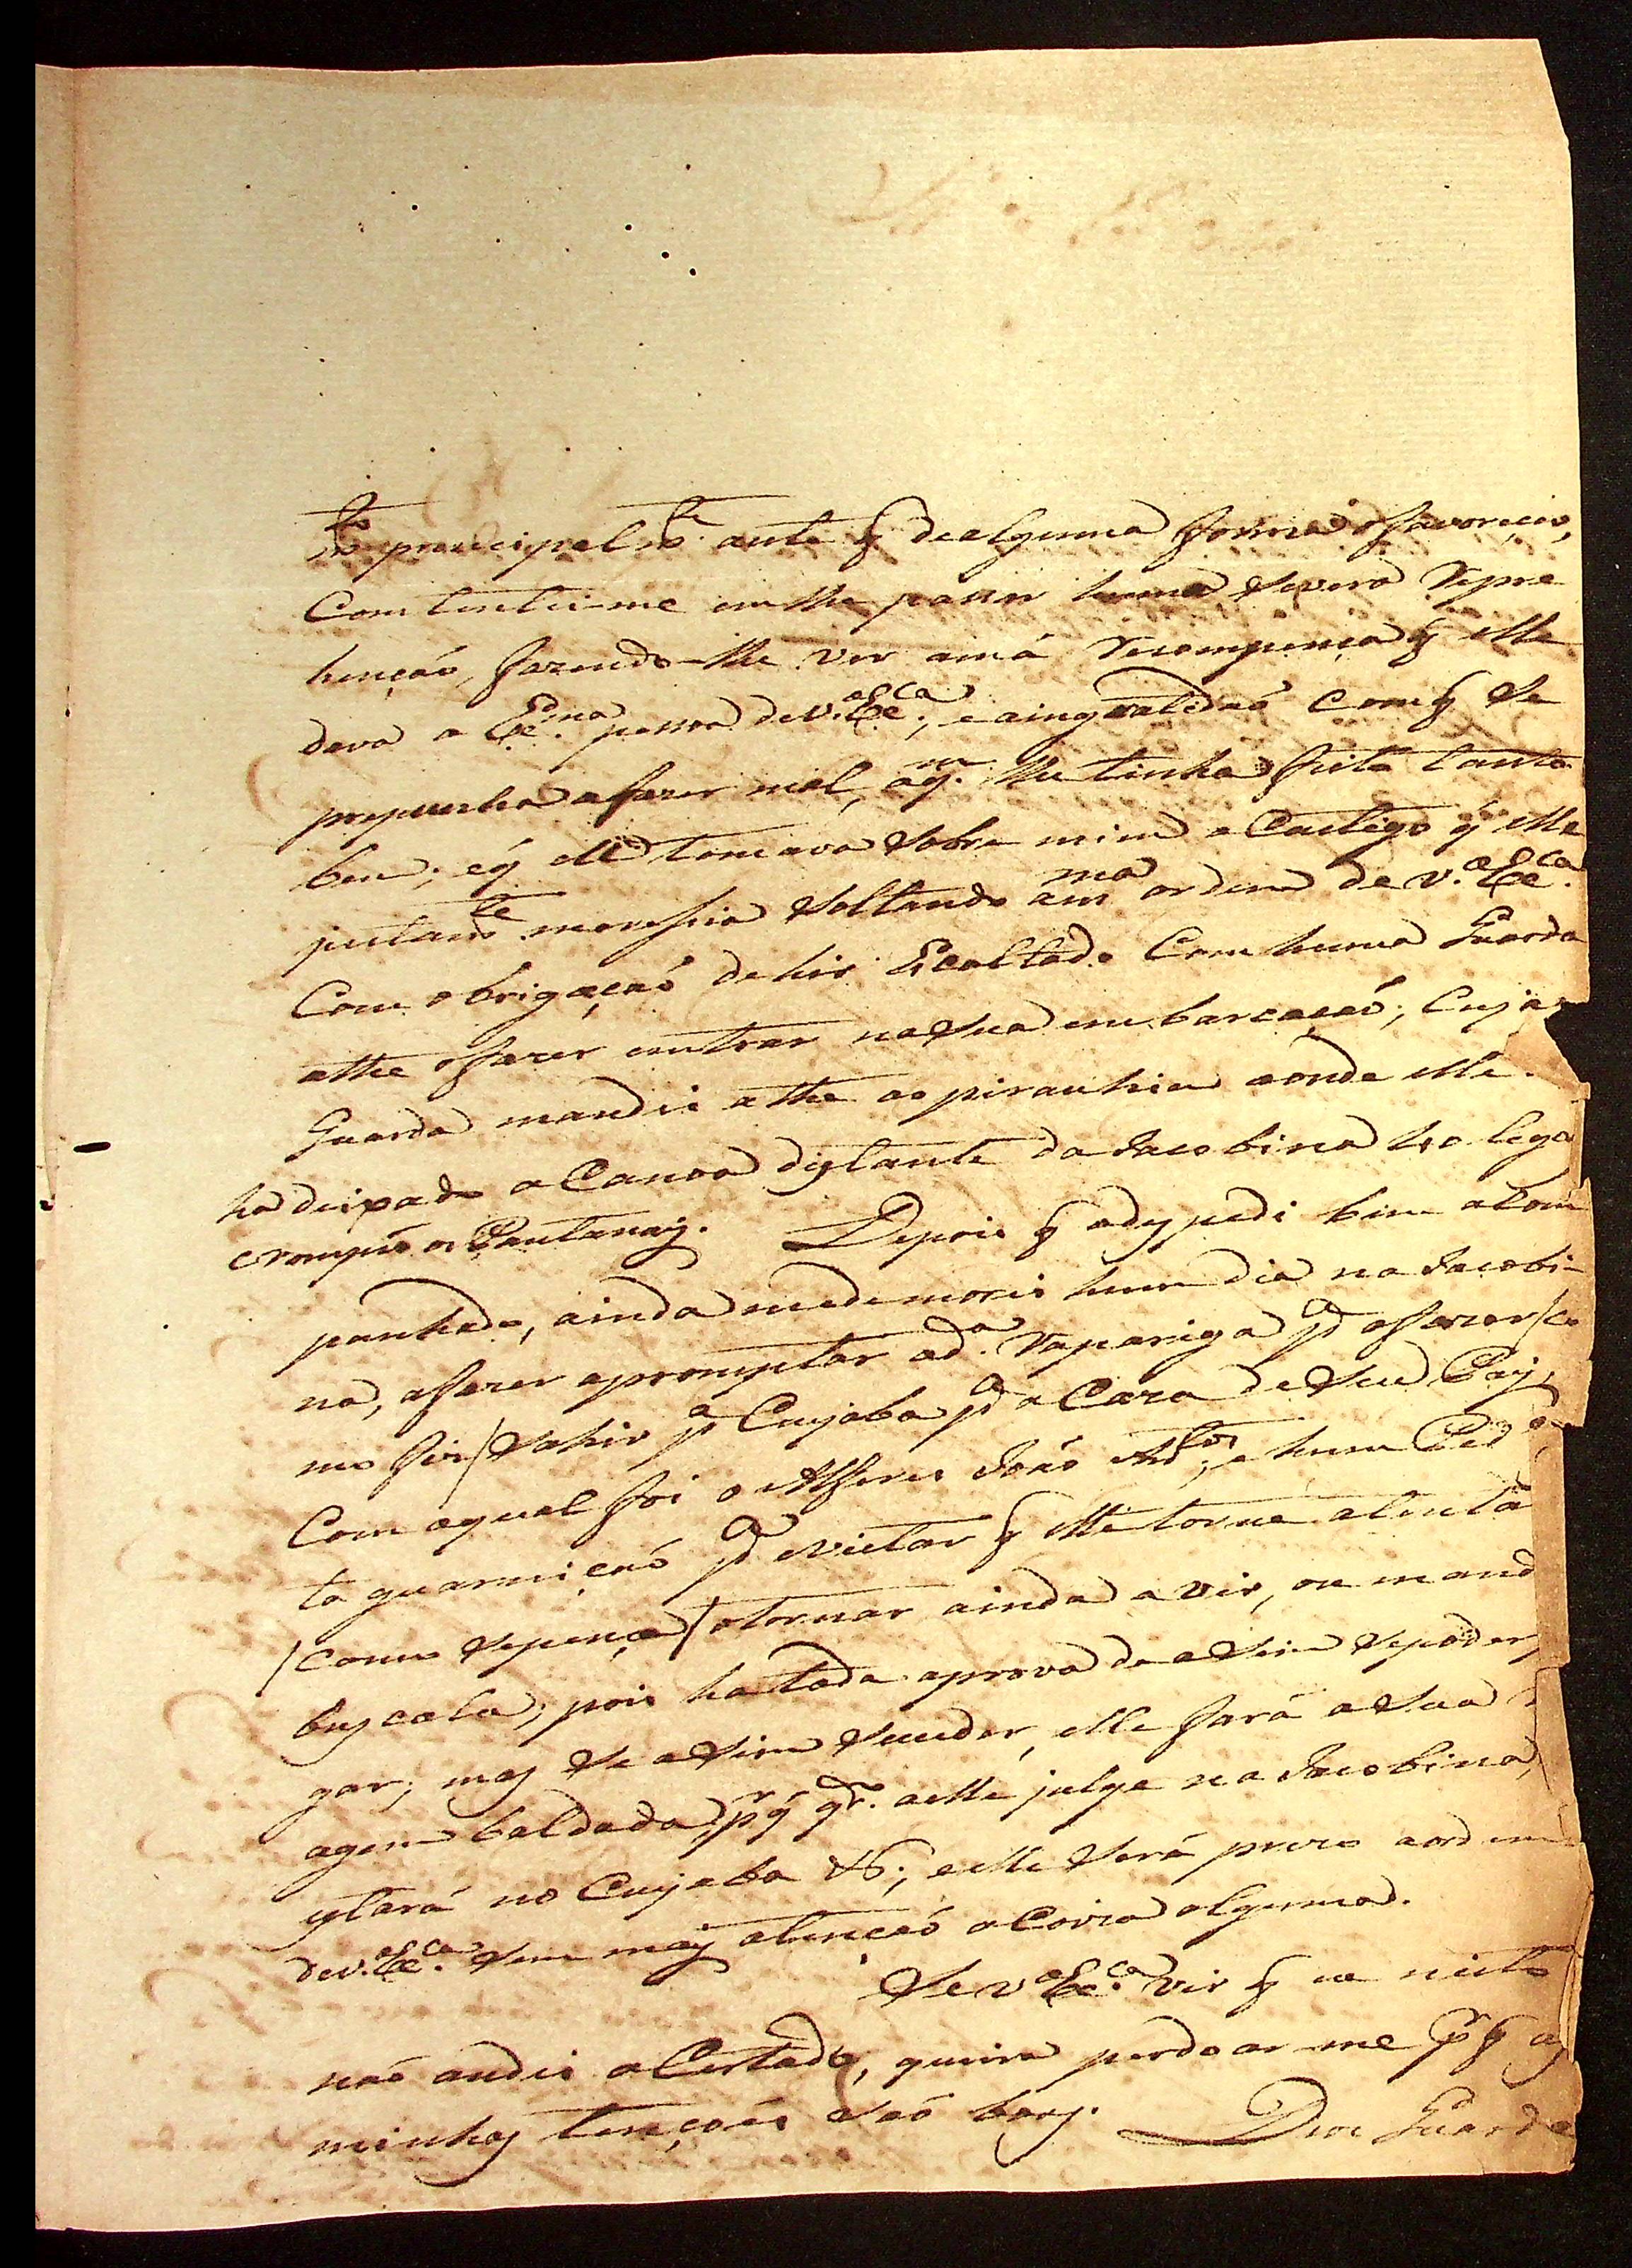 to principalmte. ante q̃ dealguma forma ofavorecia,
Com tentei-me emlhe passar huma Severa Repre
henção, fazendo-lhe ver amá Recompença q̃ elle
dava a Exma. pessoa deV.aExca., e aingratidaó Comq̃ Se
propunha afazer mal, aqm. lhe tinha feito tanto
bem; eq̃ elle tomava Sobre mim o Castigo q̃ elle
justamte merecia Soltando am.ma ordem de V.aExca.
Com obrigaçaó dehir Escoltado Com huma Guarda
athe ofazer entrar naSua embarcaçaó; Cuja
Guarda mandei athe ao piranhia aonde elle
ha deixado a Canoa distante da Jacobina 40 legoa
erompeo os Pantanais. Depois q̃ odespedi bem acom
panhado, ainda medemorei hum dia na Jacobi-
na, afazer apromptar ada. Rapariga pa afazer/co
mo fiz/ Sahir pa Cuyaba pa a Caza deSeu Pay,
Com aqual foi o Alferes Joaó
ta guarniçaó pa evictar q̃ elle torne atenta
/como Sepença/ atornar ainda avir, ou mand
buscala; pois hatoda aprova de aSim Sepoder
gar; mas Se aSim Suceder, elle fará aSua
agem baldada, pr q̃ qdo. aelle julge na Jacobina,
estará no Cuyaba &; eelle Será prezo aordem
deV.aExca. Sem mais atençaó aCoiza alguma.
SeV.aExca. vir q̃ eu nisto
naó andei aCertado, queira perdoar-me pr q̃ as
minhas tençoéis Saó boas. Deos Guarde